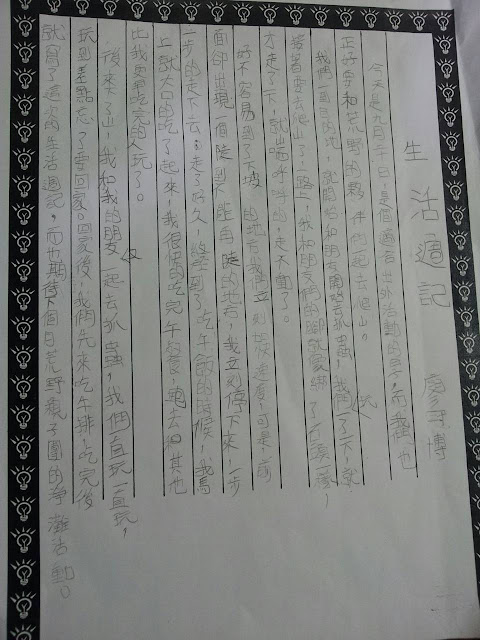 生活週記 廖博
今天是九月二十日，是個適合出外活動的日子，而我們也
正好要和荒野的夥伴們一起去爬山。
我們一到目的地，就開始和朋友開始去抓蟲，我們玩了一下，就
接著要去爬山了，一路上，我和朋友們的腳就像綁了石頭一樣，
才走了一下，就喘呼呼的，走不動了。
好不容易到了下坡的地方，我們立刻加快速度，可是，前
面卻出現一個陡到不能再陡的地方，我立刻停下來，一步
一步的走下去，走了好久，終於到了吃午餐的時候，我馬
上就大口的吃了起來，我很快的吃完午餐，跑去和其他
比我更早吃完的人玩了。
後來下山，我和我的朋友又一起去抓蟲，我們一直玩一直玩，
玩到差點忘了要回家。回家後，我們先來吃牛排，吃完後
就寫了這篇生活週記，而也期待下個日荒野親子團的淨灘活動。